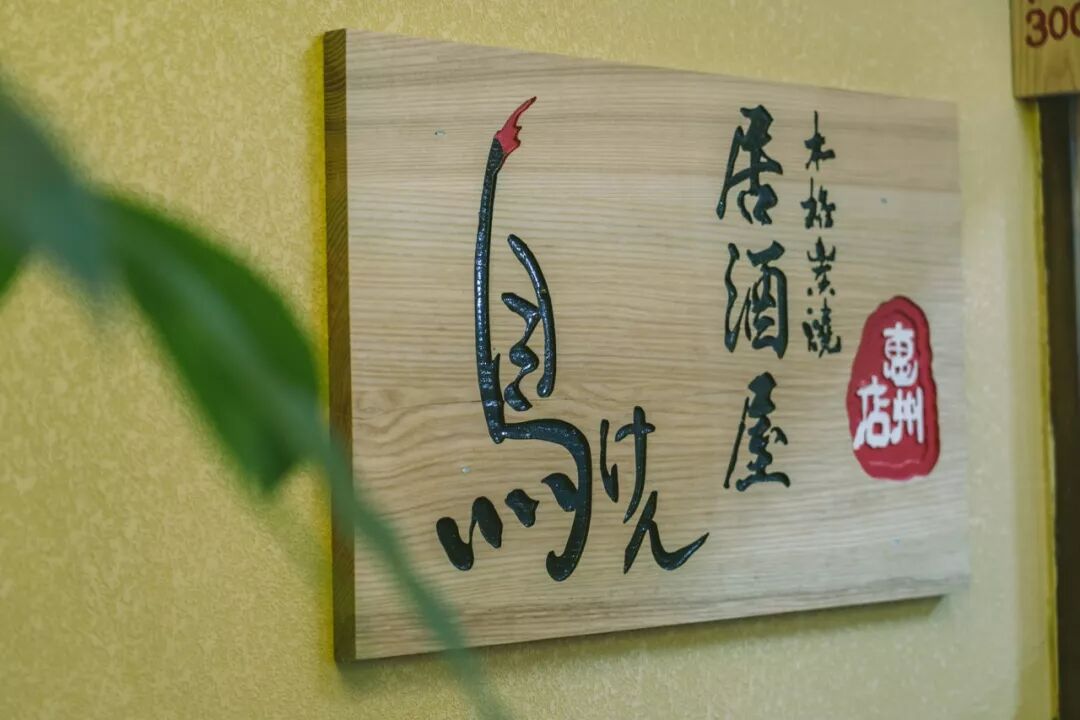 本格炭燒
居酒屋
鳥けん
惠州店
300